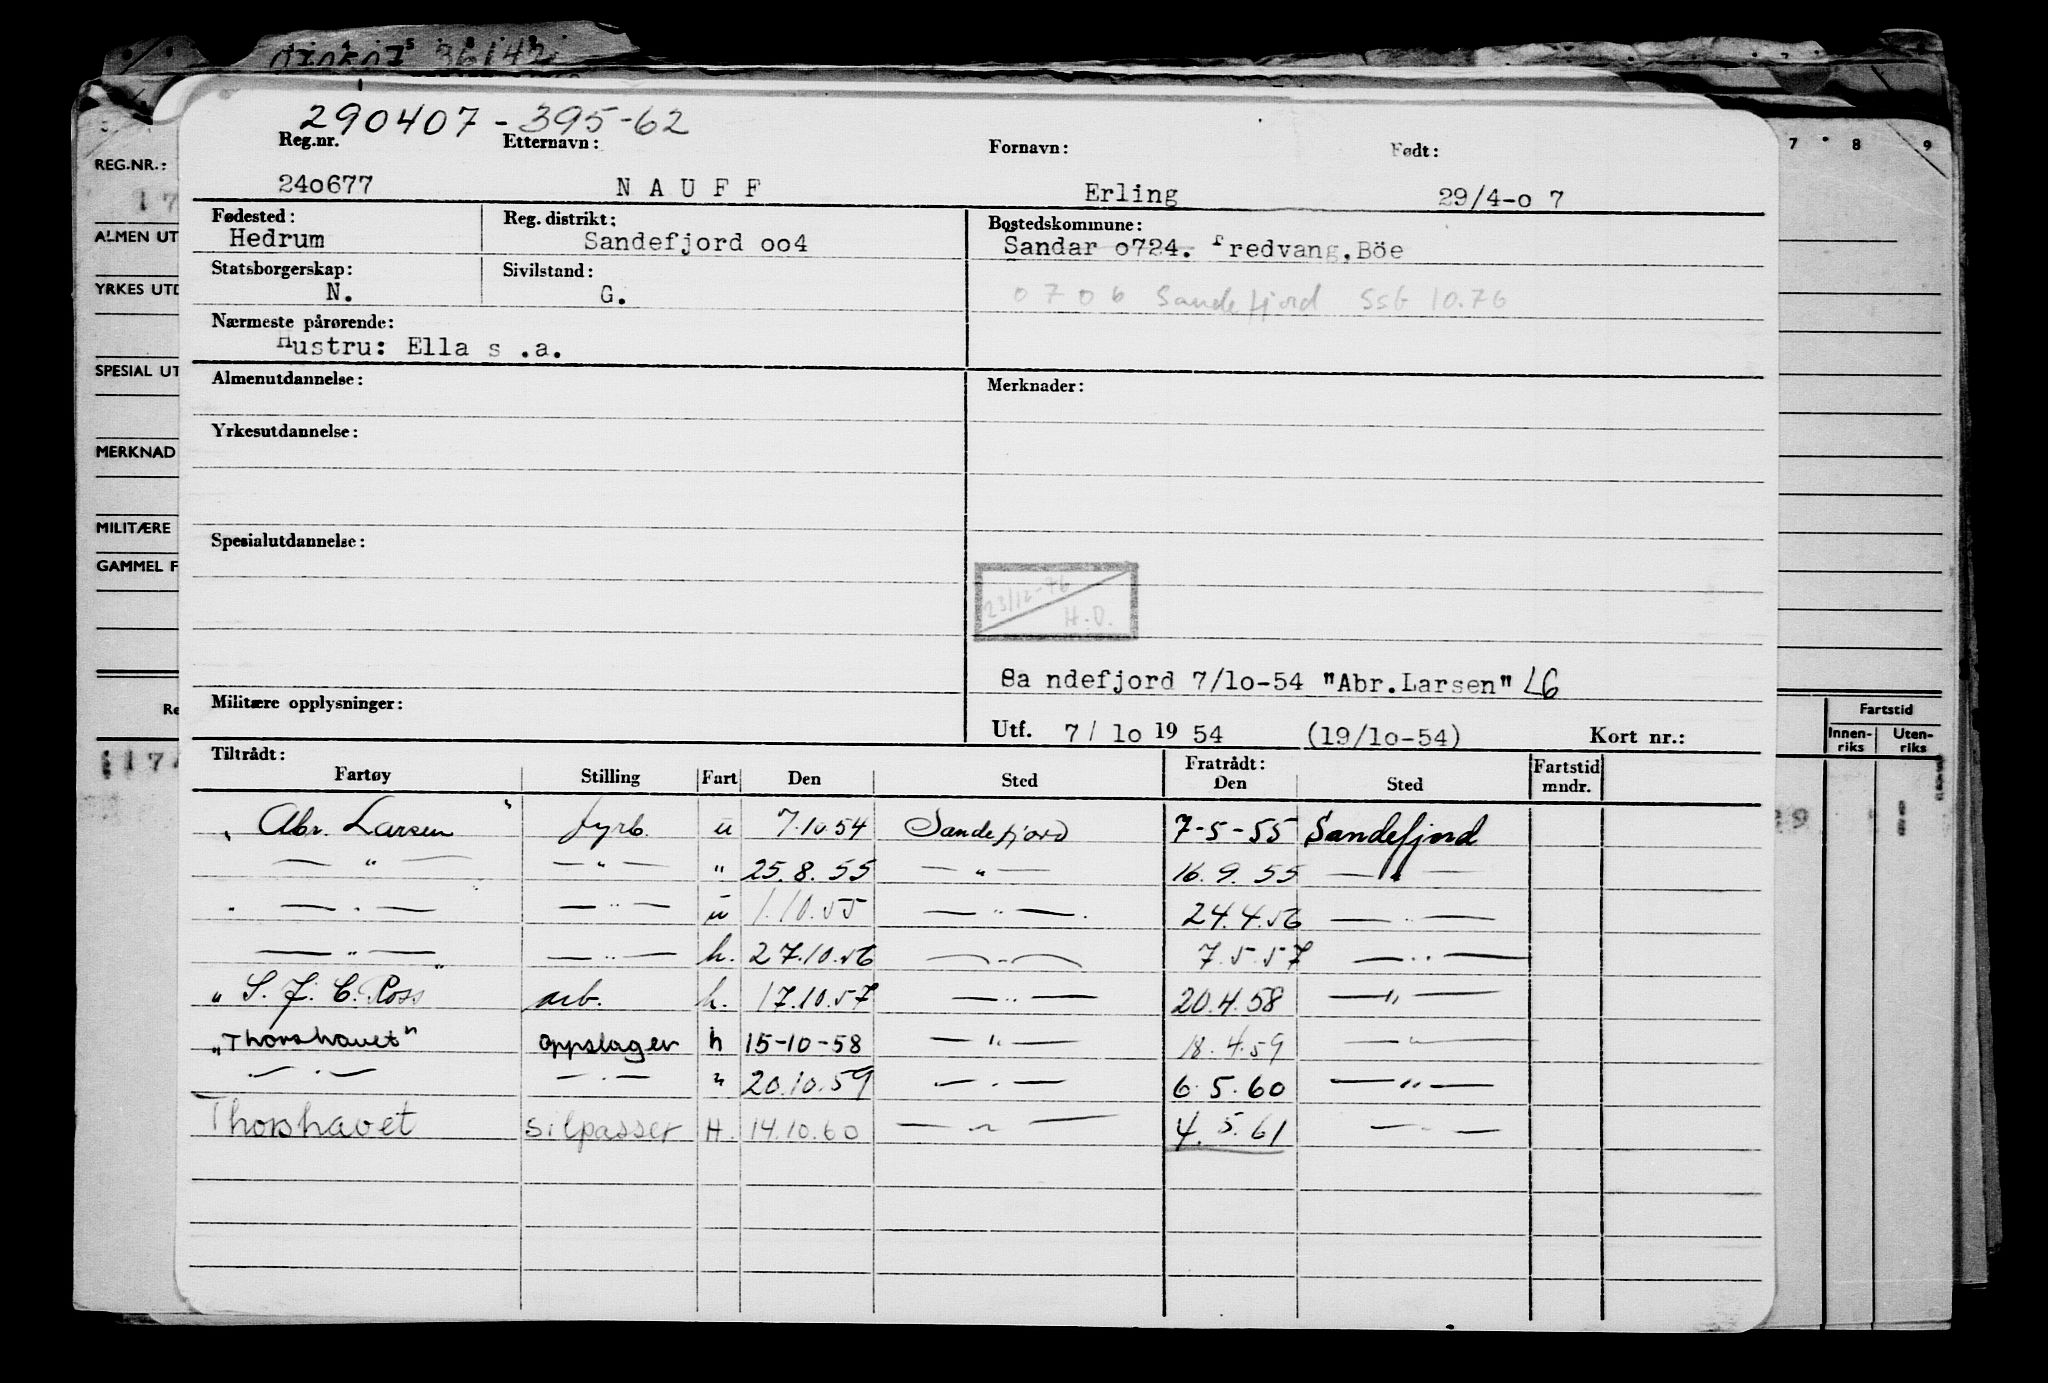 070507 36142
290407 - 395-62
Reg.nr. Etternavn: Fornavn: Født:
240677 NAUFF Erling 29/4-o 7
Fødested: Reg. distrikt: Bostedskommune:
Hedrum Sandefjord oo4 Sandar o724. Fredvang,Böe
Statsborgerskap: Sivilstand:
N. G. 0706 Sandefjord SSB 10.76
Nærmeste pårørende:
Hustru: Ella s .a.
Almenutdannelse: Merknader:
Yrkesutdannelse:
Spesialutdannelse:
23/12-76
H.O.
Sa ndefjord 7/1o-54 "Abr.Larsen" LG
Militære opplysninger:
Utf. 7/ 1o 19 54 (19/1o-54) Kort nr.:
Tiltrådt: Fratrådt: Fartstid
Fartøy Stilling Fart Den Sted Den Sted mndr.
" Abr. Larsen " fyrb. u 7.10.54 Sandefjord 7-5-55 Sandefjord
— " — — " — " 25.8.55 — " — 16.9.55 — " —
" — " — — " — u 1.10.55 — " — 24.4.56 — " —
— " — — " — h. 27.10.56 — " — 7.5.57 — " —
" S. J. C. Ross arb. h. 17.10.57 — " — 20.4.58 — " —
"Thorshavet" oppslager h 15-10-58 — " — 18.4.59 — " —
— " — — " — " 20.10.59 — " — 6.5.60 — " —
Thorshavet Silpasser H. 14.10.60 — " — 4.5.61 — " —
REG.NR.:
ALMEN UT
YRKES UTD
SPESIAL UT
MERKNAD
MILITÆRE
GAMMEL F
Re
7 8 9
Fartstid
Innen-
riks
Uten-
riks